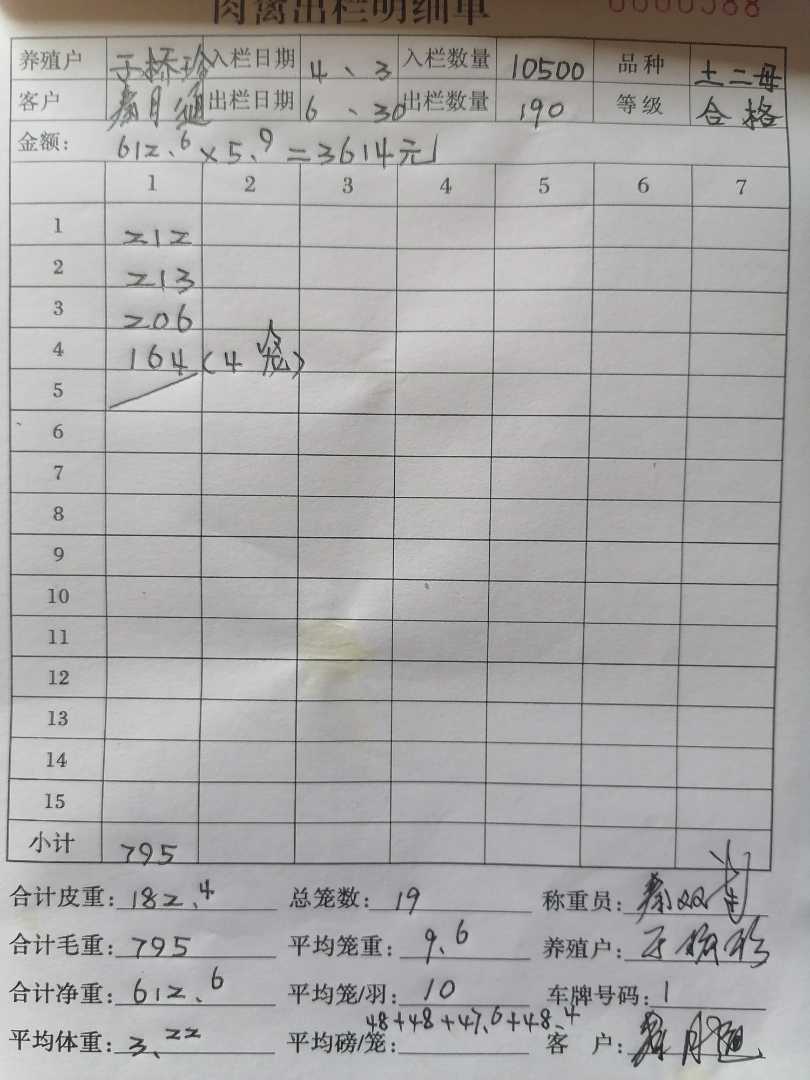 肉禽出栏明细单 0000588
养殖户 于桥珍 入栏日期 4、3 入栏数量 10500 品种 土二母
客户 秦月 出栏日期 6、30 出栏数量 190 等级 合格
金额: 612.6×5.9=3614元
1 2 3 4 5 6 7
1 212
2 213
3 206
4 164(4笼)
5
6
7
8
9
10
11
12
13
14
15
小计 795
合计皮重: 182.4 总笼数: 19 称重员: 秦双
合计毛重: 795 平均笼重: 9.6 养殖户: 于桥珍
合计净重: 612.6 平均笼/羽: 10 车牌号码: 1
平均体重: 3.22 平均磅/笼: 48+48+47.6+48.4 客 户: 秦月